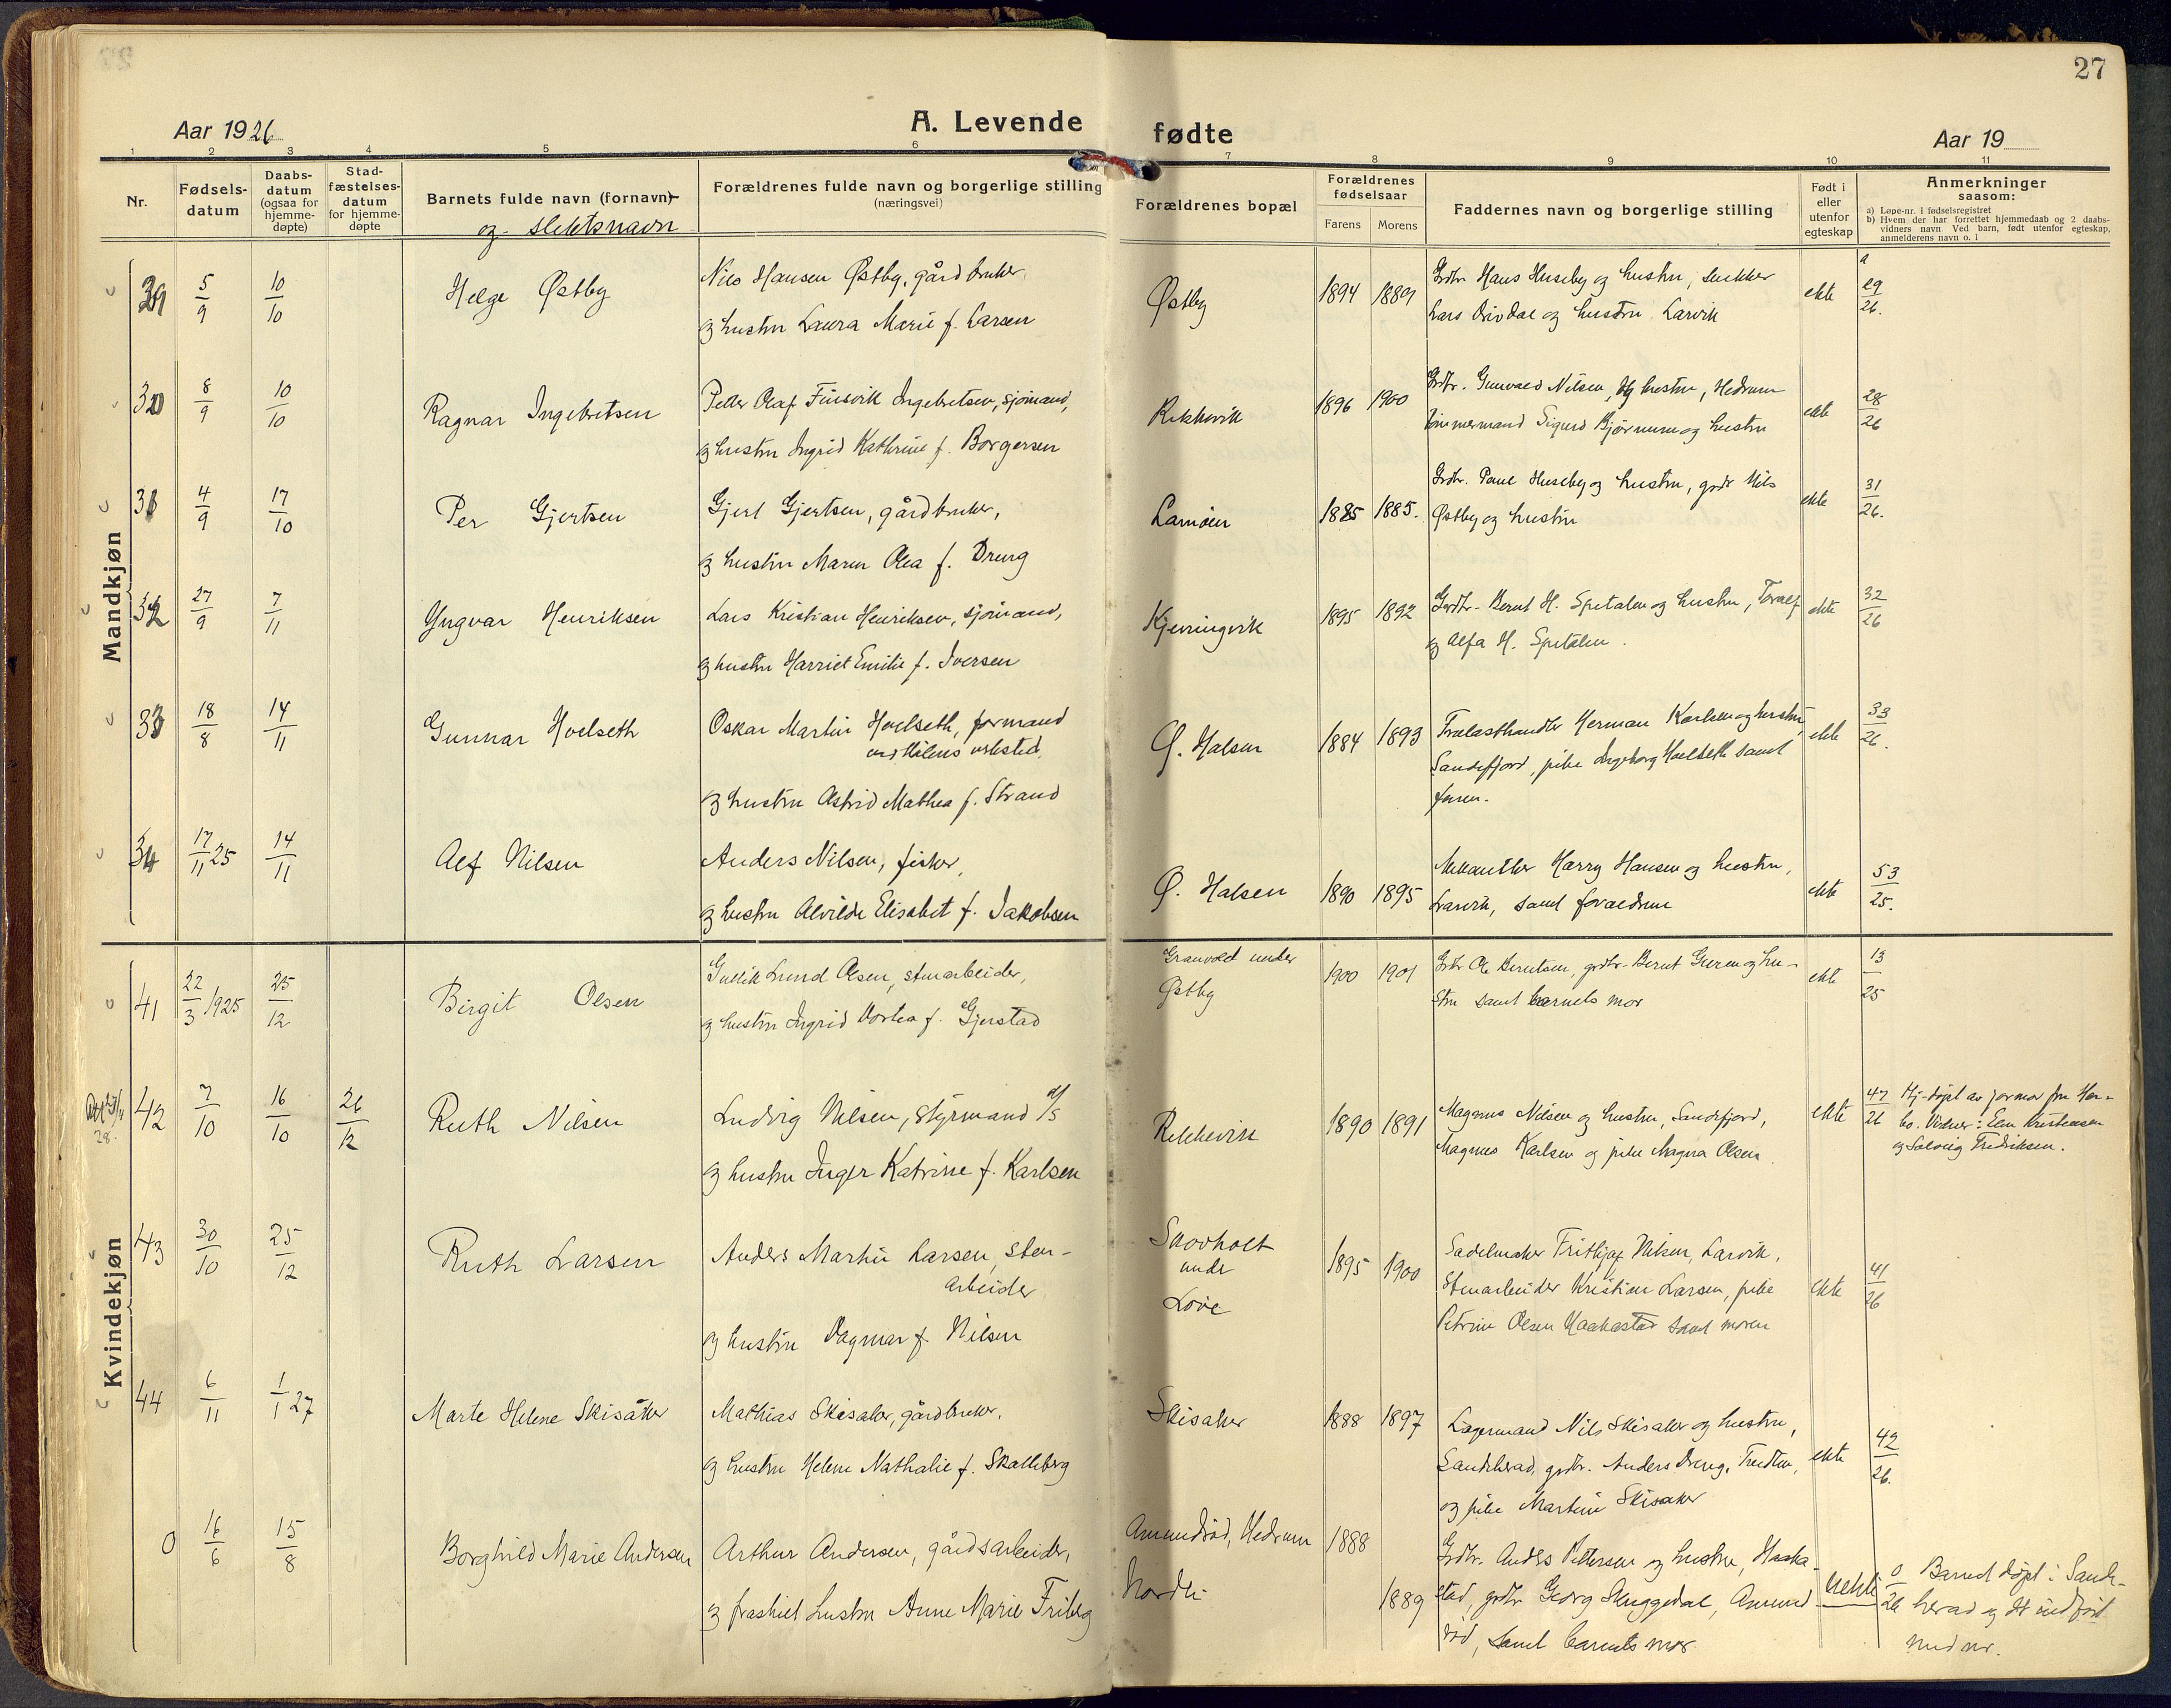 27
Aar 1926
A. Levende fødte
Aar 19
1 2 3 4 5 6 7 8 9 10 11
Nr.
Fødsels-
datum
Daabs-
datum
(ogsaa for
hjemme-
døpte)
Stad-
fæstelses-
datum
for hjemme-
døpte
Barnets fulde navn (fornavn)
og slektsnavn
Forældrenes fulde navn og borgerlige stilling
(næringsvei)
Forældrenes bopæl
Forældrenes
fødselsaar
Farens Morens
Faddernes navn og borgerlige stilling
Født i
eller
utenfor
egteskap
Anmerkninger
saasom:
a) Løpe-nr. i fødselsregistret
b) Hvem der har forrettet hjemmedaab og 2 daabs-
vidners navn. Ved barn, født utenfor egteskap,
anmelderens navn o. l
Mandkjøn
29 5/9 10/10 Helge Østby
Nils Hansen Østby, gårdbruker,
og hustru Laura Marie f. Larsen
Østby 1894 1889
Grdbr. Hans Huseby og hustru, snekker
Lars Orivdal og hustru Larvik
ekte
a 29/26.
30 8/9 10/10 Ragnar Ingebretsen
Petter Olaf Finsvik Ingebretsen, sjømand,
og hustru Ingrid Kathrine f. Borgersen
Rekkevik 1896 1900
Grdbr. Gunvald Nilsen og hustru, Hedrum
tømmermand Sigurd Bjørnum og hustru
ekte 28/26
31 4/9 17/10 Per Gjertsen
Gjert Gjertsen, gårdbruker,
og hustru Maren Olea f. Dreng
Lamøen 1885 1885.
Grdbr. Paul Huseby og hustru, grdr Nils
Østby og hustru
ekte 31/26.
32 27/9 7/11 Yngvar Henriksen
Lars Kristian Henriksen, sjømand,
og hustru Harriet Emilie f. Iversen
Kjerringvik 1895 1892
Grdbr. Bernt H. Spetalen og hustru, Toralf
og Alfa H. Spetalen.
ekte 32/26
33 18/8 14/11 Gunnar Hoelseth
Oskar Martin Hoelseth, formand
ved Kilens verksted,
og hustru Astrid Mathea f. Strand
Ø. Halsen 1884 1893
Trælasthandler Herman Karlsen og hustru,
Sandefjord, pike Ingeborg Hoelseth samt
faren.
ekte 33/26.
34 17/11 25 14/11 Alf Nilsen
Anders Nilsen, fisker,
og hustru Alvilde Elisabet f. Jakobsen
Ø. Halsen 1890 1895
Mekaniker Harry Hansen og hustru,
Larvik, samt forældrene
ekte 53/25.
Kvindekjøn
41 22/3 1925 25/12 Birgit Olsen
Gullik Lund Olsen, stenarbeider,
og hustru Ingrid Dortea f. Gjerstad
Granvold under
Østby
1900 1901
Grdbr Ole Berntsen, grdbr. Bernt Grenen og hu-
stru samt barnets mor
ekte 13/25
42 7/10 16/10 26/12 Ruth Nilsen
Ludvig Nilsen, styrmand
og hustru Inger Katrine f. Karlsen
Rekkevik 1890 1891
Magnus Nilsen og hustru, Sandefjord,
Magnus Karlsen og pike Magna Olsen
ekte 47/26
Hj-døpt av jormor fru Her-
bo. Vidner: Elen Kristensen
og Solveig Fredriksen.
43 30/10 25/12 Ruth Larsen
Anders Martin Larsen, sten-
arbeider
og hustru Dagmar f. Nilsen
Skovholt
under
Løve
1895 1900
Sadelmaker Fritjof Nilsen, Larvik,
Stenarbeider Kristian Larsen, pike
Petrine Olsen Haakestad samt moren
ekte 41/26
44 6/11 1/1 27 Marte Helene Skisåker
Mathias Skisaker, gårdbruker,
og hustru Helene Nathalie f. Skalleberg
Skisaker 1888 1897
Lagermand Nils Skisaker og hustru,
Sandeherad, grdbr. Anders Dreng, Tjødling,
og pike Martine Skisaker
ekte 42/26.
0 16/6 15/8 Borghild Marie Andersen
Arthur Andersen, gårdsarbeider,
og fraskilt hustru Anne Marie Friberg
Amundrød, Hedrum
Nordli
1888
1889
Grdbr. Anders Pettersen og hustru, Haake-
stad, grdbr Georg Skuggedal, Amund-
rød, samt barnets mor.
uekte
0/26 Barnet døpt i Sande-
herad og der indført
med nr.